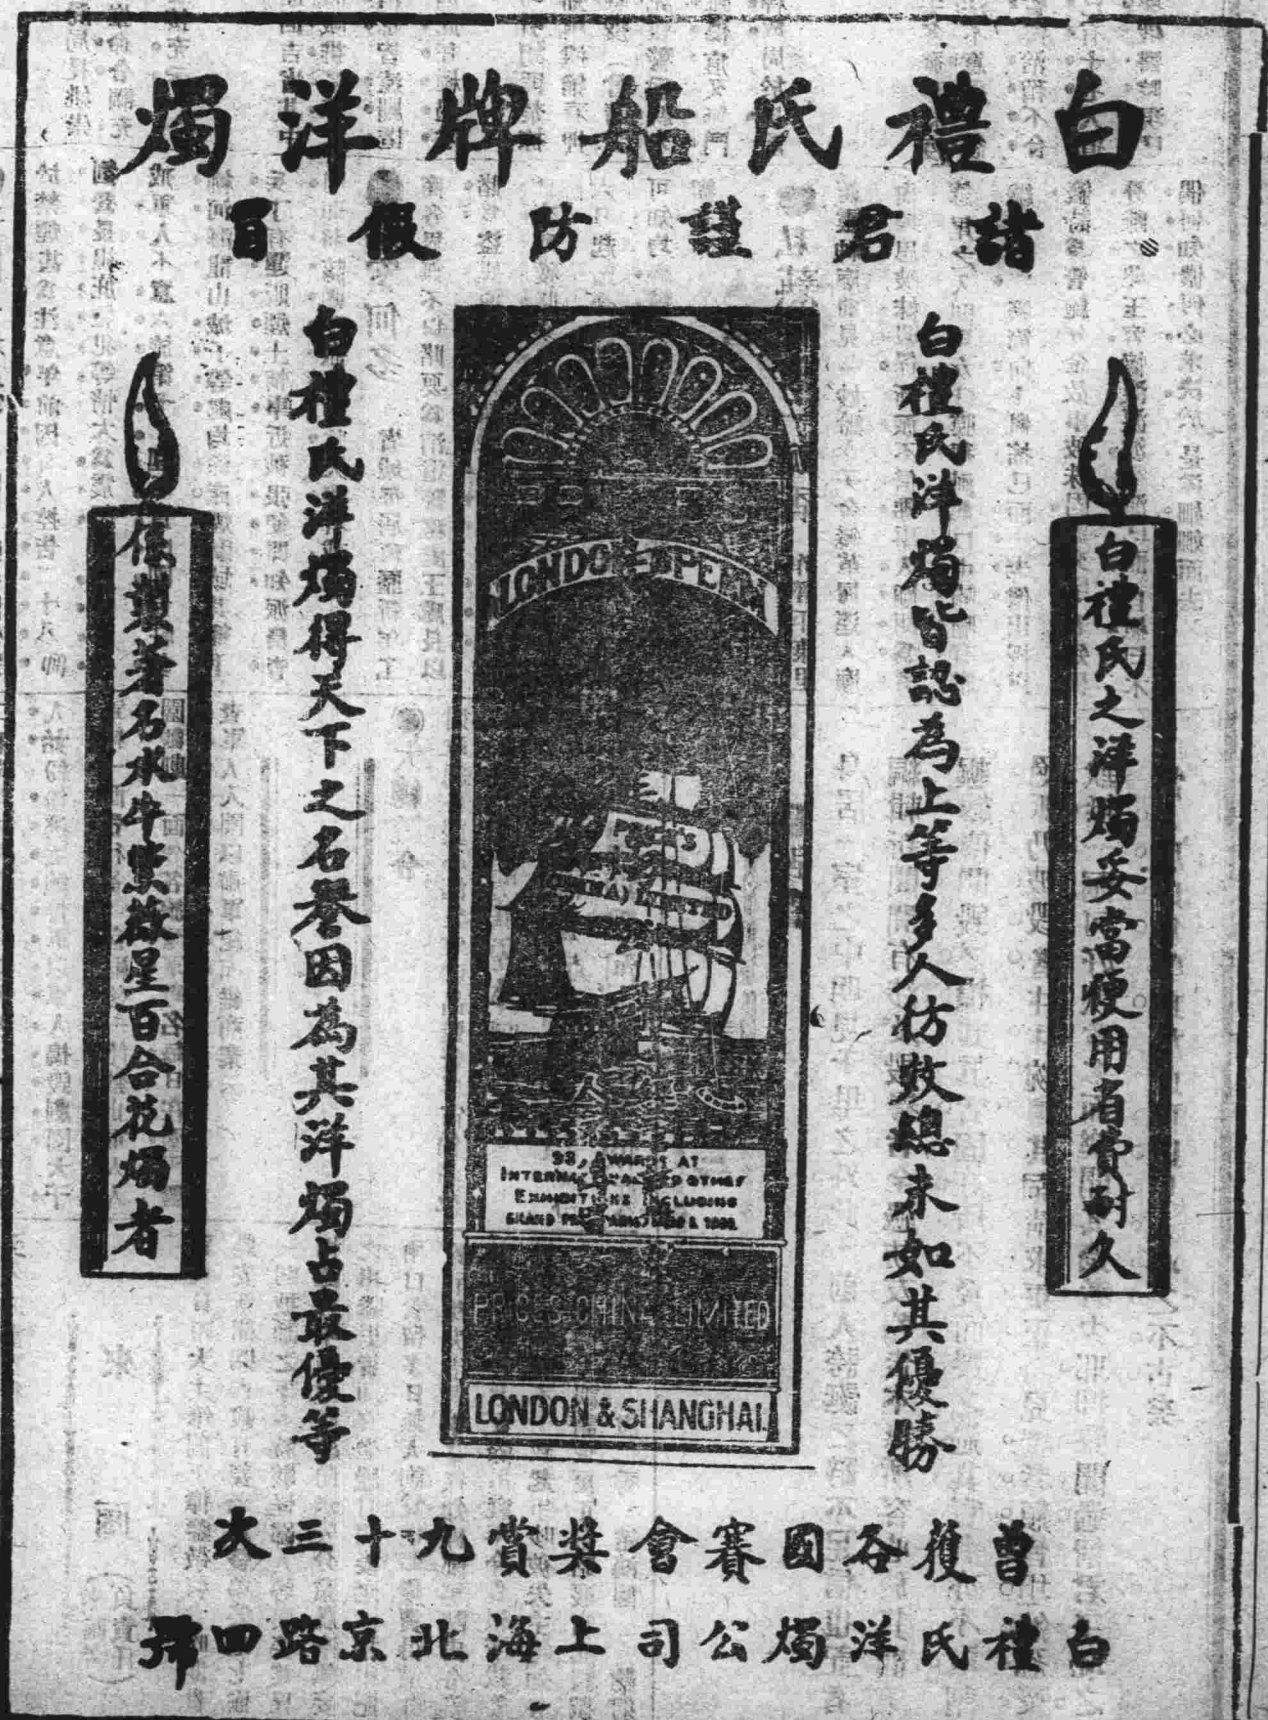 白禮氏船牌洋燭
諸君謹防假冒
白禮氏之洋燭妥當便用省費耐久
白禮氏洋燭皆認為上等多人彷效總未如其優勝
LONDON SPERM
PRICE'S
(CHINA) LIMITED
93, AWARDS AT
INTERNATIONAL AND OTHER
EXHIBITIONS INCLUDING
GRAND
PRICES CHINA LIMITED
LONDON & SHANGHAI.
白禮氏洋燭得天下之名譽因為其洋燭占最優等
係製著名水牛紫薇星百合花燭者
曾獲各國賽會獎賞九十三次
白禮氏洋燭公司上海北京路四號